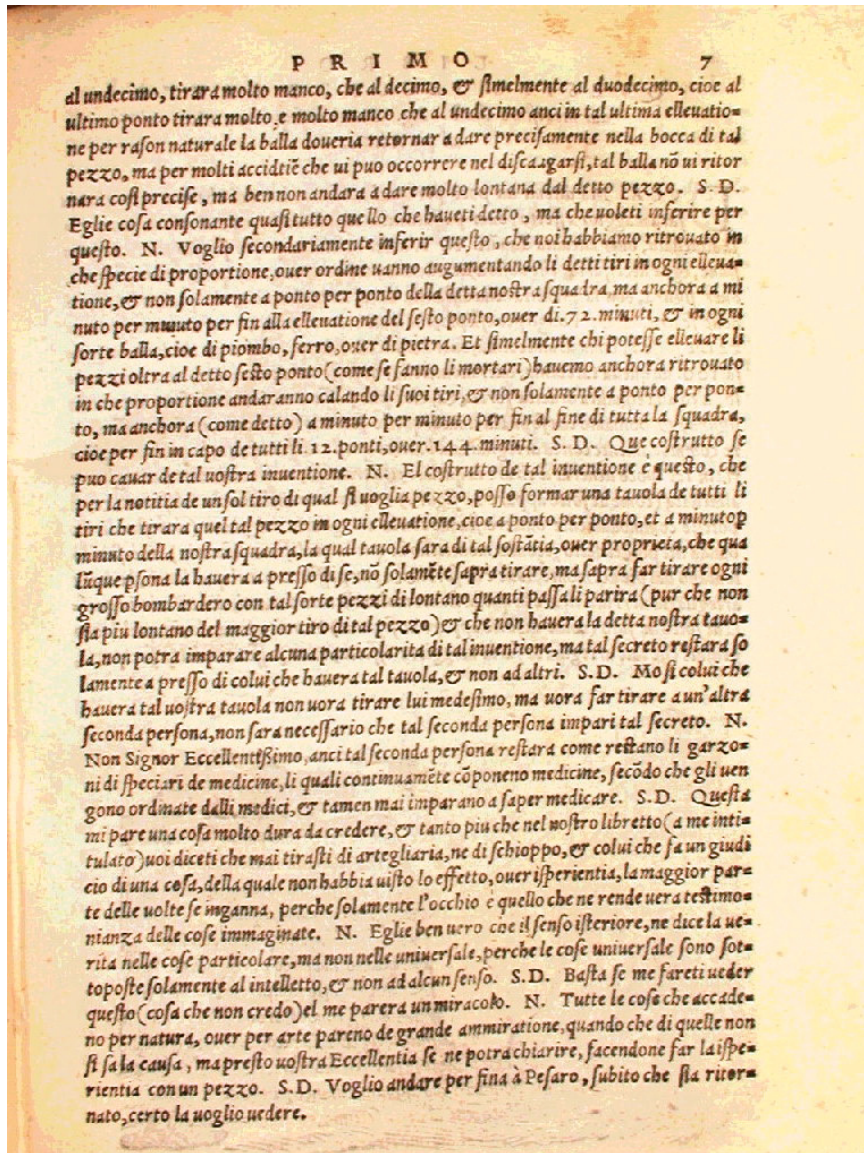 PRIMO 7
al undecimo, tirara molto manco, che al decimo, & simelmente al duodecimo, cioe al
ultimo ponto tirara molto, e molto manco che al undecimo anci in tal ultima elleuatio=
ne per rason naturale la balla doueria retornar a dare precisamente nella bocca di tal
pezzo, ma per molti accidtiē che ui puo occorrere nel discargarsi, tal balla nō ui ritor
nara cosi precise, ma ben non andara a dare molto lontana dal detto pezzo. S. D.
Eglie cosa consonante quasi tutto quello che haueti detto, ma che uoleti inferire per
questo. N. Voglio secondariamente inferir questo, che noi habbiamo ritrouato in
che specie di proportione, ouer ordine uanno augumentando li detti tiri in ogni elleua=
tione, & non solamente a ponto per ponto della detta nostra squadra, ma anchora a mi
nuto per minuto per fin alla elleuatione del sesto ponto, ouer di.72.minuti, & in ogni
sorte balla, cioe di piombo, ferro, ouer di pietra. Et simelmente chi potesse elleuare li
pezzi oltra al detto sesto ponto (come se fanno li mortari) hauemo anchora ritrouato
in che proportione andaranno calando li suoi tiri, & non solamente a ponto per pon=
to, ma anchora (come detto) a minuto per minuto per fin al fine di tutta la squadra,
cioe per fin in capo de tutti li 12.ponti, ouer.144.minuti. S. D. Que costrutto se
puo cauar de tal uostra inuentione. N. El costrutto de tal inuentione è questo, che
per la notitia de un sol tiro di qual si uoglia pezzo, posso formar una tauola de tutti li
tiri che tirara quel tal pezzo in ogni elleuatione, cioe a ponto per ponto, et a minuto ꝑ
minuto della nostra squadra, la qual tauola sara di tal sostātia, ouer proprieta, che qua
lūque ꝑsona la hauera a presso di se, nō solamēte sapra tirare, ma sapra far tirare ogni
grosso bombardero con tal sorte pezzi di lontano quanti passa li parira (pur che non
sia piu lontano del maggior tiro di tal pezzo) & che non hauera la detta nostra tauo=
la, non potra imparare alcuna particolarita di tal inuentione, ma tal secreto restara so
lamente a presso di colui che hauera tal tauola, & non ad altri. S. D. Mo si colui che
hauera tal uostra tauola non uora tirare lui medesimo, ma uora far tirare a un'altra
seconda persona, non sara necessario che tal seconda persona impari tal secreto. N.
Non Signor Eccellentissimo, anci tal seconda persona restara come restano li garzo=
ni di speciari de medicine, li quali continuamēte cōponeno medicine, secōdo che gli uen
gono ordinate dalli medici, & tamen mai imparano a saper medicare. S. D. Questa
mi pare una cosa molto dura da credere, & tanto piu che nel uostro libretto (a me inti=
tulato) uoi diceti che mai tirasti di artegliaria, ne di schioppo, & colui che fa un giudi
cio di una cosa, della quale non habbia uisto lo effetto, ouer isperientia, la maggior par=
te delle uolte se inganna, perche solamente l'occhio è quello che ne rende uera testimo=
nianza delle cose immaginate. N. Eglie ben uero che il senso isteriore, ne dice la ue=
rita nelle cose particolare, ma non nelle uniuersale, perche le cose uniuersale sono sot=
toposte solamente al intelletto, & non ad alcun senso. S. D. Basta se me fareti ueder
questo (cosa che non credo) el me parera un miracolo. N. Tutte le cose che accade=
no per natura, ouer per arte pareno de grande ammiratione, quando che di quelle non
si sa la causa, ma presto uostra Eccellentia se ne potra chiarire, facendone far la ispe=
rientia con un pezzo. S. D. Voglio andare per fina à Pesaro, subito che sia ritor=
nato, certo la uoglio uedere.